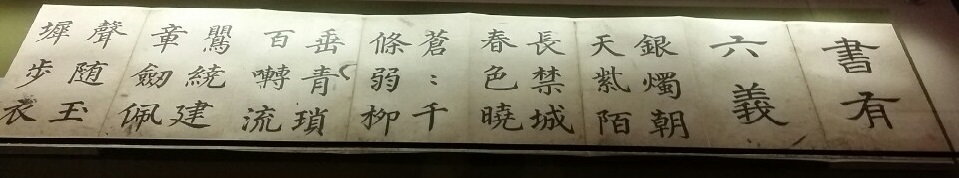 書有
六義
銀燭朝
天紫陌
長禁城
春色曉
蒼〻千
條弱柳
垂青瑣
百囀流
鸎繞建
章劒佩
聲随玉
墀步衣